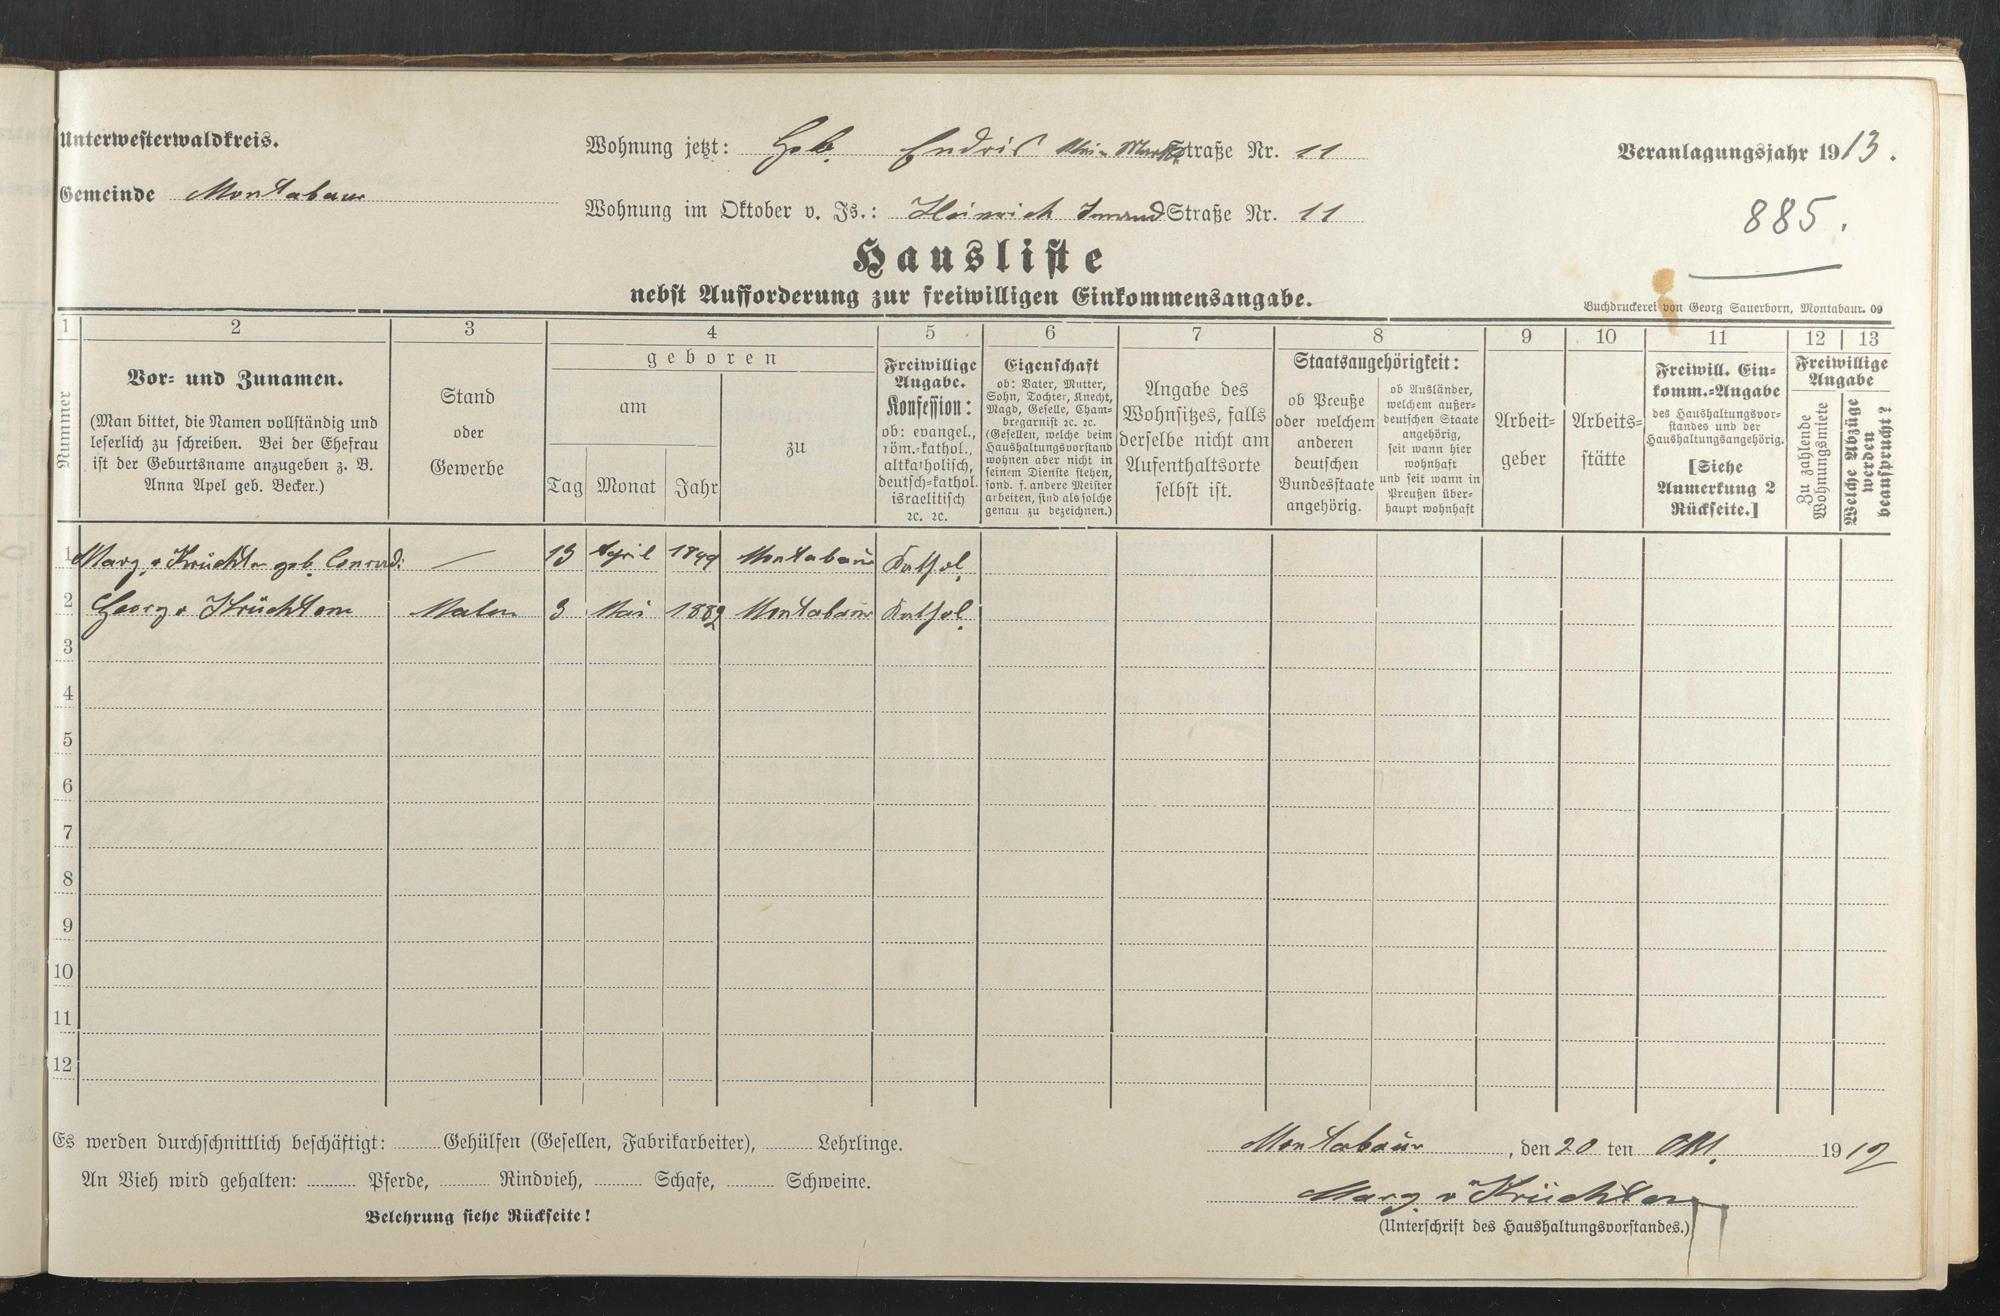 Unterwesterwaldkreis.
Wohnung jetzt: Geb. Endris Straße Nr. 11
Veranlagungsjahr 1913.
Gemeinde Montabaur
Wohnung im Oktober v. Js.: Heinrich Straße Nr. 11
885.
Hausliste
nebst Aufforderung zur freiwilligen Einkommensangabe.
Buchdruckerei von Georg Sauerborn, Montabaur. 09
1 2 3 4 5 6 7 8 9 10 11 12 13
Nummer
Vor- und Zunamen.
(Man bittet, die Namen vollständig und
leserlich zu schreiben. Bei der Ehefrau
ist der Geburtsname anzugeben z. B.
Anna Apel geb. Becker.)
Stand
oder
Gewerbe
geboren
am
Tag Monat Jahr
zu
Freiwillige
Angabe.
Konfession:
ob: evangel.,
röm.-kathol.,
altkatholisch,
deutsch-kathol.
israelitisch
ꝛc. ꝛc.
Eigenschaft
ob: Vater, Mutter,
Sohn, Tochter, Knecht,
Magd, Geselle, Cham-
bregarnist ꝛc. ꝛc.
(Gesellen, welche beim
Haushaltungsvorstand
wohnen aber nicht in
seinem Dienste stehen,
sond. f. andere Meister
arbeiten, sind als solche
genau zu bezeichnen.)
Angabe des
Wohnsitzes, falls
derselbe nicht am
Aufenthaltsorte
selbst ist.
Staatsangehörigkeit:
ob Preuße
oder welchem
anderen
deutschen
Bundesstaate
angehörig.
ob Ausländer,
welchem außer-
deutschen Staate
angehörig,
seit wann hier
wohnhaft
und seit wann in
Preußen über-
haupt wohnhaft
Arbeit-
geber
Arbeits-
stätte
Freiwill. Ein-
komm.-Angabe
des Haushaltungsvor-
standes und der
Haushaltungsangehörig.
[Siehe
Anmerkung 2
Rückseite.]
Freiwillige
Angabe
Zu zahlende
Wohnungsmiete
Welche Abzüge
werden
beansprucht?
1 Marg. v Krüchten geb. Conrad. — 13 April 1849 Montabaur Kathol.
2 Georg v Krüchten Maler 3 Mai 1882 Montabaur Kathol.
3
4
5
6
7
8
9
10
11
12
Es werden durchschnittlich beschäftigt: Gehülfen (Gesellen, Fabrikarbeiter), Lehrlinge.
An Vieh wird gehalten: Pferde, Rindvieh, Schafe, Schweine.
Belehrung siehe Rückseite!
Montabaur, den 20 ten Okt. 1912
Marg v Krüchten
(Unterschrift des Haushaltungsvorstandes.)